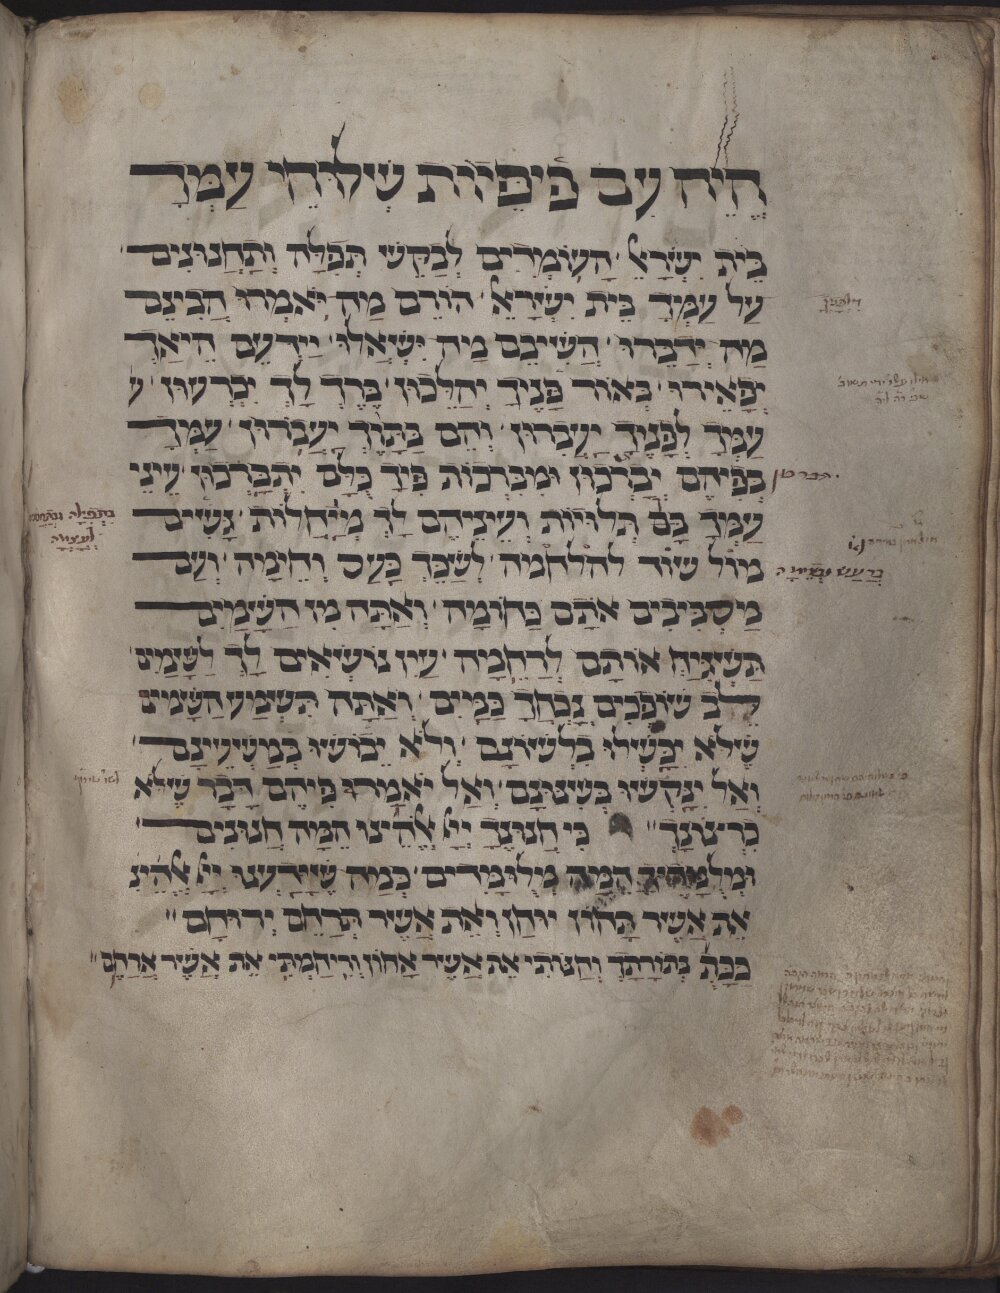 הֱיֵה עִם פִּיפִיּוֹת שְׁלוּחֵי עַמְּךָ
בֵּית יִשְׂרָאֵל הָעוֹמְדִים לְבַקֵּשׁ תְּפִלָּה וְתַחֲנוּנִים
עַל עַמְּךָ בֵּית יִשְׂרָאֵל הוֹרֵם מַה יֹּאמְרוּ הֲבִינֵם
מַה יְדַבֵּרוּ הֲשִׁיבֵם מַה יִּשְׁאֲלוּ יַדְּעֵם הֵיאַךְ
יְפָאֵרוּ בְּאוֹר פָּנֶיךָ יְהַלֵּכוּן בֶּרֶךְ לְךָ יִכְרְעוּן ע
עַמְּךָ לְפָנֶיךָ יַעַבְרוּן וְהֵם בַּתָּוֶךְ יַעֲבֹרוּן עַמְּךָ
בְּפִיהֶם יְבָרְכוּן וּמִבִּרְכוֹת פִּיךָ כֻּלָּם יִתְבָּרְכוּן עֵינֵי
עַמְּךָ בָּם תְּלוּיוֹת וְעֵינֵיהֶם לְךָ מְיַחֲלוֹת גָּשִׁים
מוּל שׁוֹד לְהִלָּחֲמָה לְשַׁכֵּךְ כַּעַס וְחֵימָה וְעַם
מַסְבִּיבִים אֹתָם כַּחוֹמָה וְאַתָּה מִן הַשָּׁמַיִם
תַּשְׁגִּיחַ אוֹתָם לְרַחֲמָה עַיִן נוֹשְׂאִים לְךָ לַשָּׁמַיִם
לֵב שׁוֹפְכִים נָכְחֲךָ כַּמַּיִם וְאַתָּה תִּשְׁמַע הַשָּׁמַיִם
שֶׁלֹּא יִכָּשְׁלוּ בִּלְשׁוֹנָם וְלֹא יֵבוֹשׁוּ בְּמַשְׁעֵינָם
וְאַל יִנָּקְשׁוּ בְּשִׁנּוּנָם וְאַל יֹאמְרוּ פִּיהֶם דָּבָר שֶׁלֹּא
כִּרְצוֹנָךְ כִּי חֲנוּנֶיךָ יְיָ אֱלֹהֵינוּ הֵמָּה חֲנוּנִים
וּמְלֻמָּדֶיךָ הֵמָּה מְלוּמָּדִים כְּמָה שֶׁיָּדַעְנוּ יְיָ אֱלֹהֵינוּ
אֵת אֲשֶׁר תָּחוֹן יוּחַן וְאֵת אֲשֶׁר תְּרַחֵם יְרוּחָם
כַּכָּת׳ בְּתוֹרָתָךְ וְחַנּוֹתִי אֵת אֲשֶׁר אָחוֹן וְרִיחַמְתִּי אֵת אֲשֶׁר אֲרַחֵם